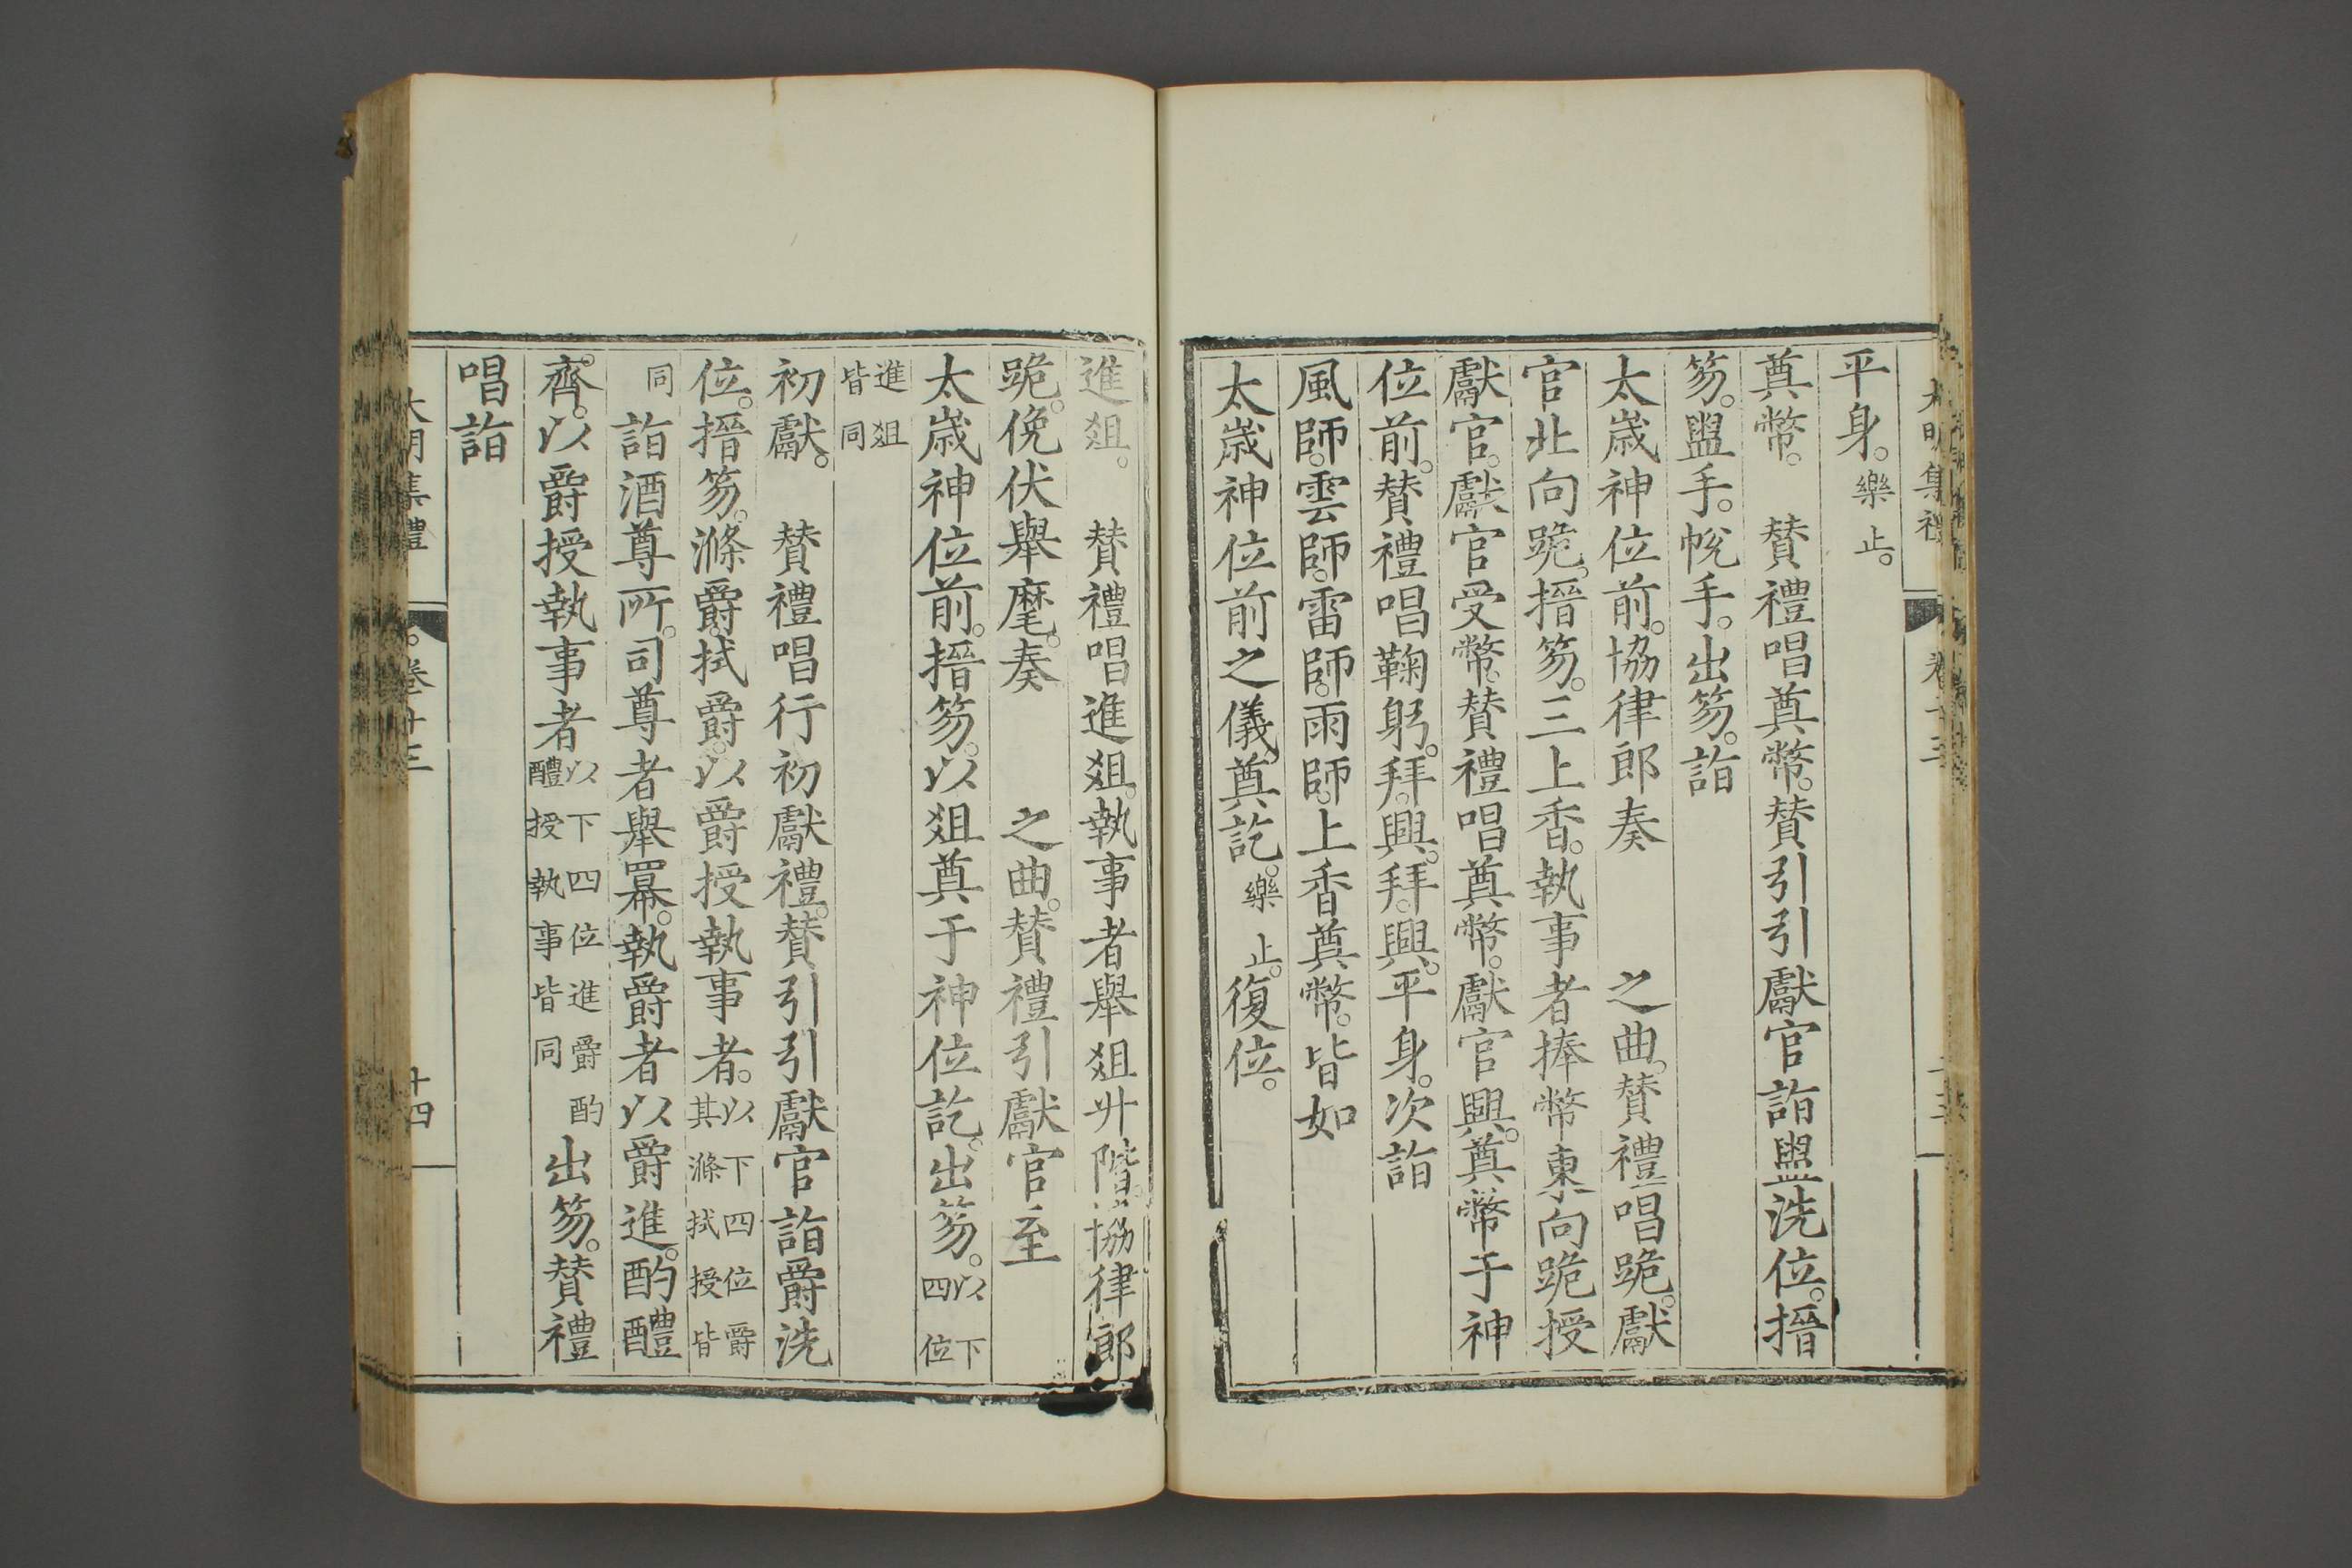 平身。樂止。
奠幣。　贊禮唱奠幣。贊引引獻官詣盥洗位。搢
笏。盥手。帨手。出笏。詣
太歲神位前。協律郎奏　　之曲。贊禮唱跪。獻
官北向跪。搢笏。三上香。執事者捧幣東向跪授
獻官。獻官受幣。贊禮唱奠幣。獻官興。奠幣于神
位前。贊禮唱鞠躬。拜。興。拜。興。平身。次詣
風師。雲師。雷師。雨師。上香奠幣。皆如
太歲神位前之儀。奠訖。樂止。復位。
進爼。　贊禮唱進爼。執事者舉爼升階。協律郎
跪。俛伏舉麾。奏　　之曲。贊禮引獻官至
太歲神位前。搢笏。以爼奠于神位訖。出笏。以下四位
進爼皆同
初獻。　贊禮唱行初獻禮。贊引引獻官詣爵洗
位。搢笏。滌爵。拭爵。以爵授執事者。以下四位爵其滌拭授皆
同詣酒尊所。司尊者舉羃。執爵者以爵進。酌醴
齊。以爵授執事者以下四位進爵酌醴授執事皆同出笏。贊禮
唱詣
大明集禮　卷十三　十四